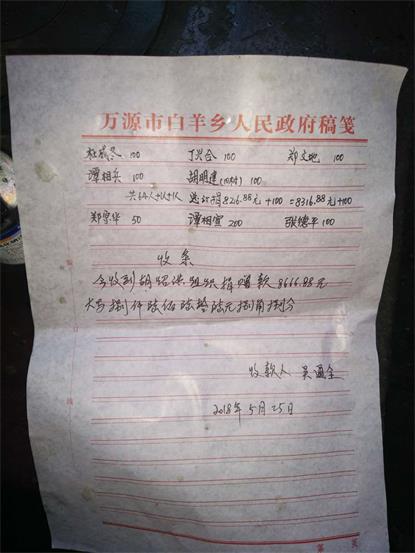 万源市白羊乡人民政府稿笺
100 丁兴合 100 郑文地 100
谭相兵 100 胡明建 100
共 人+1人+1人 总计捐8216.88元+100=8316.88元+100
郑宗华 50 谭相宣 200 张德平 100
收条
今收到胡绍洪组织捐赠款8666.88元
大写捌仟陆佰陆拾陆元捌角捌分
收款人 吴通全
2018年5月25日